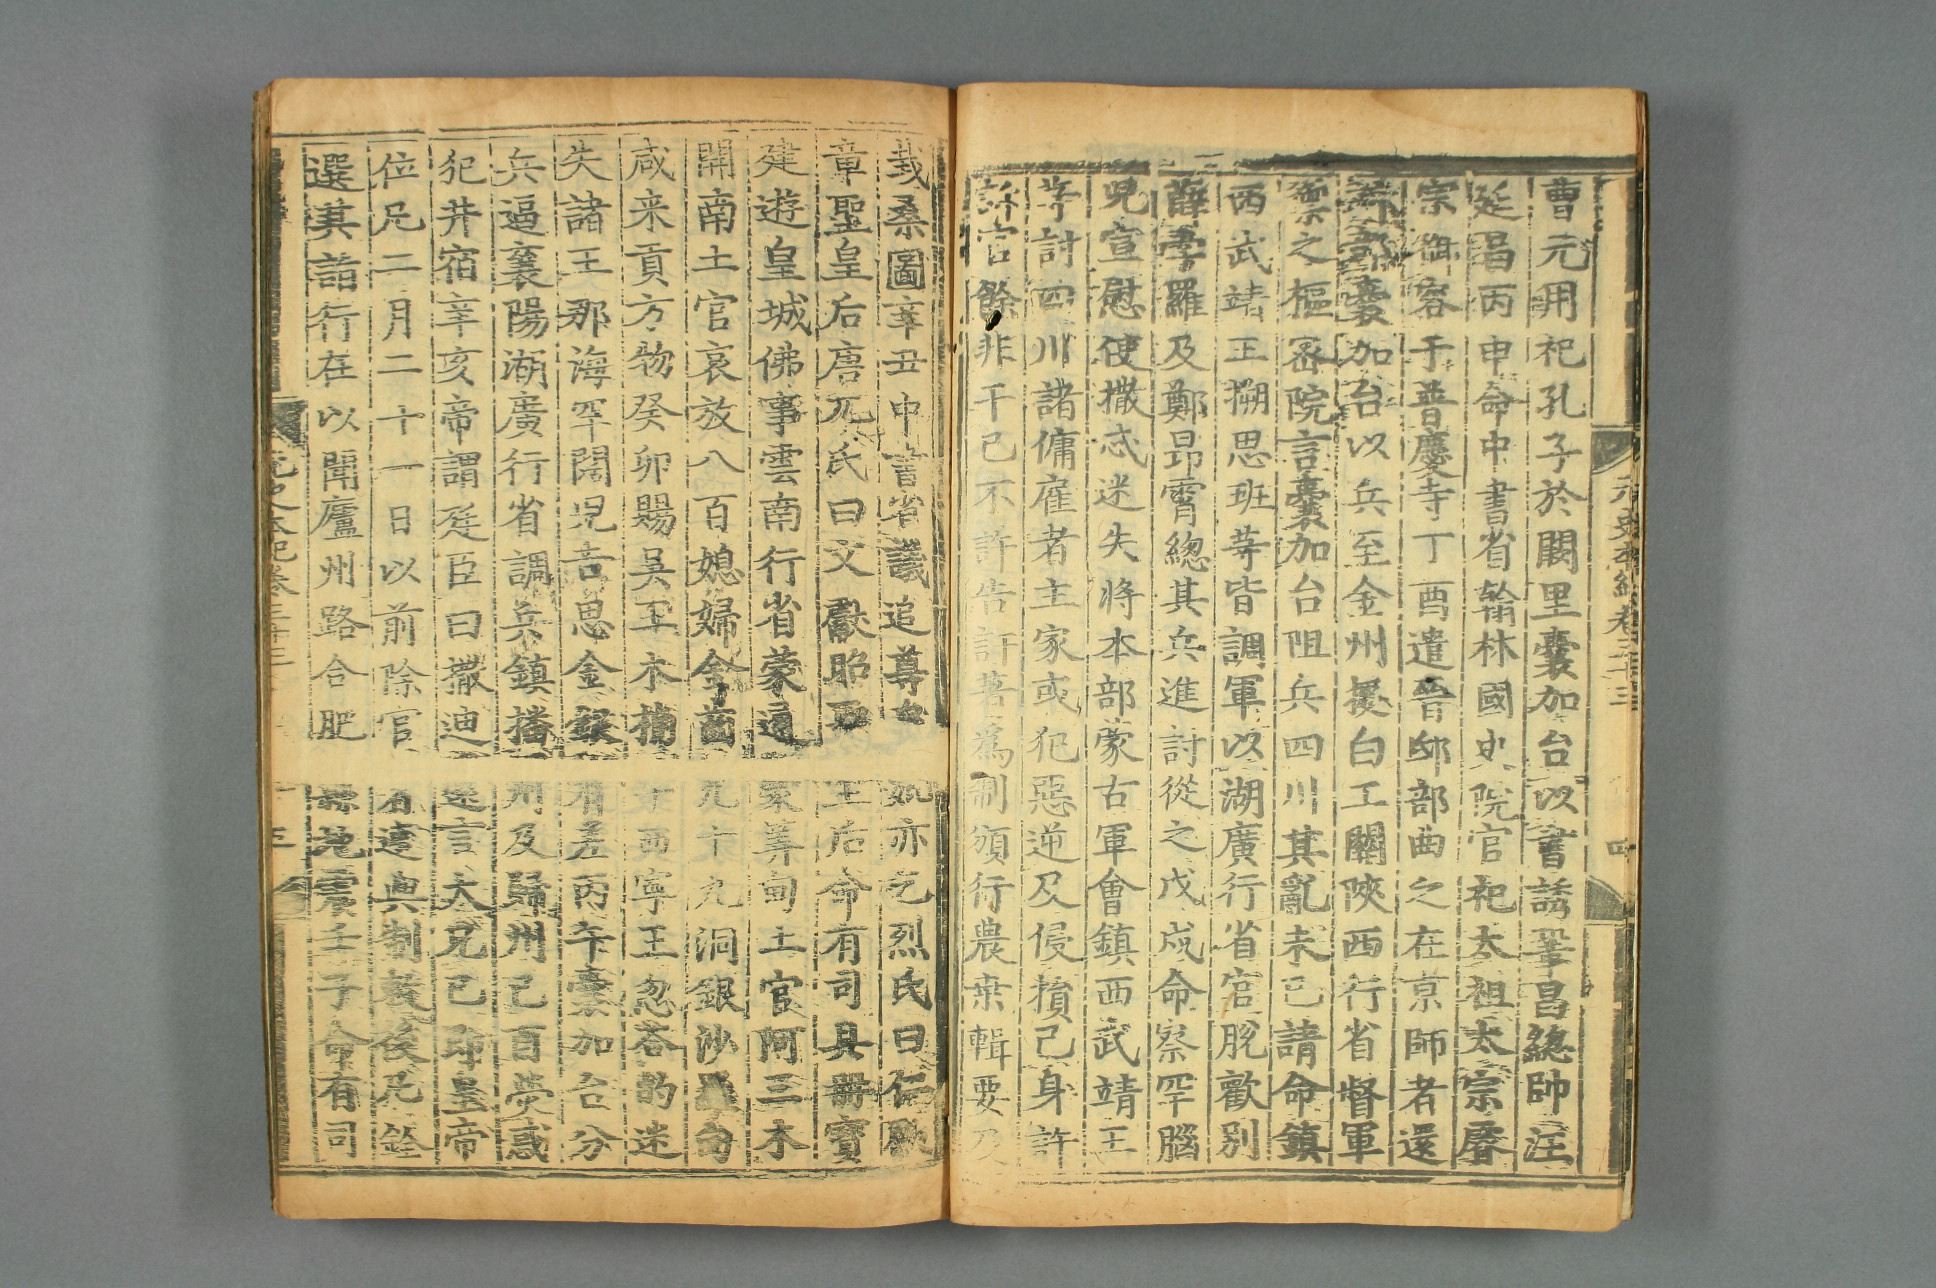 元史本紀卷三十三
曹元用祀孔子於闕里囊加台以書誘鞏昌總帥汪
延昌丙申命中書省翰林國史院官祀太祖太宗睿
宗御容于普慶寺丁酉遣晉邸部曲之在京師者還
所部囊加台以兵至金州據白工關陝西行省督軍
禦之樞密院言囊加台阻兵四川其亂未已請命鎮
西武靖王搠思班等皆調軍以湖廣行省官脫歡別
薛孛羅及鄭昂霄總其兵進討從之戊戌命察罕腦
兒宣慰使撒忒迷失將本部蒙古軍會鎮西武靖王
等討四川諸傭雇者主家或犯惡逆及侵損己身許
訴官餘非干己不許告訐著為制頒行農桑輯要及
栽桑圖辛丑中書省議追尊皇妣亦乞烈氏曰仁獻
章聖皇后唐兀氏曰文獻昭聖皇后命有司具冊寶
建遊皇城佛事雲南行省蒙通蒙筭甸土官阿三木
開南土官哀放八百媳婦金齒九十九洞銀沙羅甸
咸來貢方物癸卯賜吳王木楠子西寧王忽答的迷
失諸王那海罕闊兒吉思金銀有差丙午囊加台分
兵逼襄陽湖廣行省調兵鎮播州及歸州己酉熒惑
犯井宿辛亥帝謂廷臣曰撒迪還言大兄已即皇帝
位凡二月二十一日以前除官者速與制敕後凡銓
選其詣行在以聞廬州路合肥縣地震壬子命有司
元史本紀卷三十三